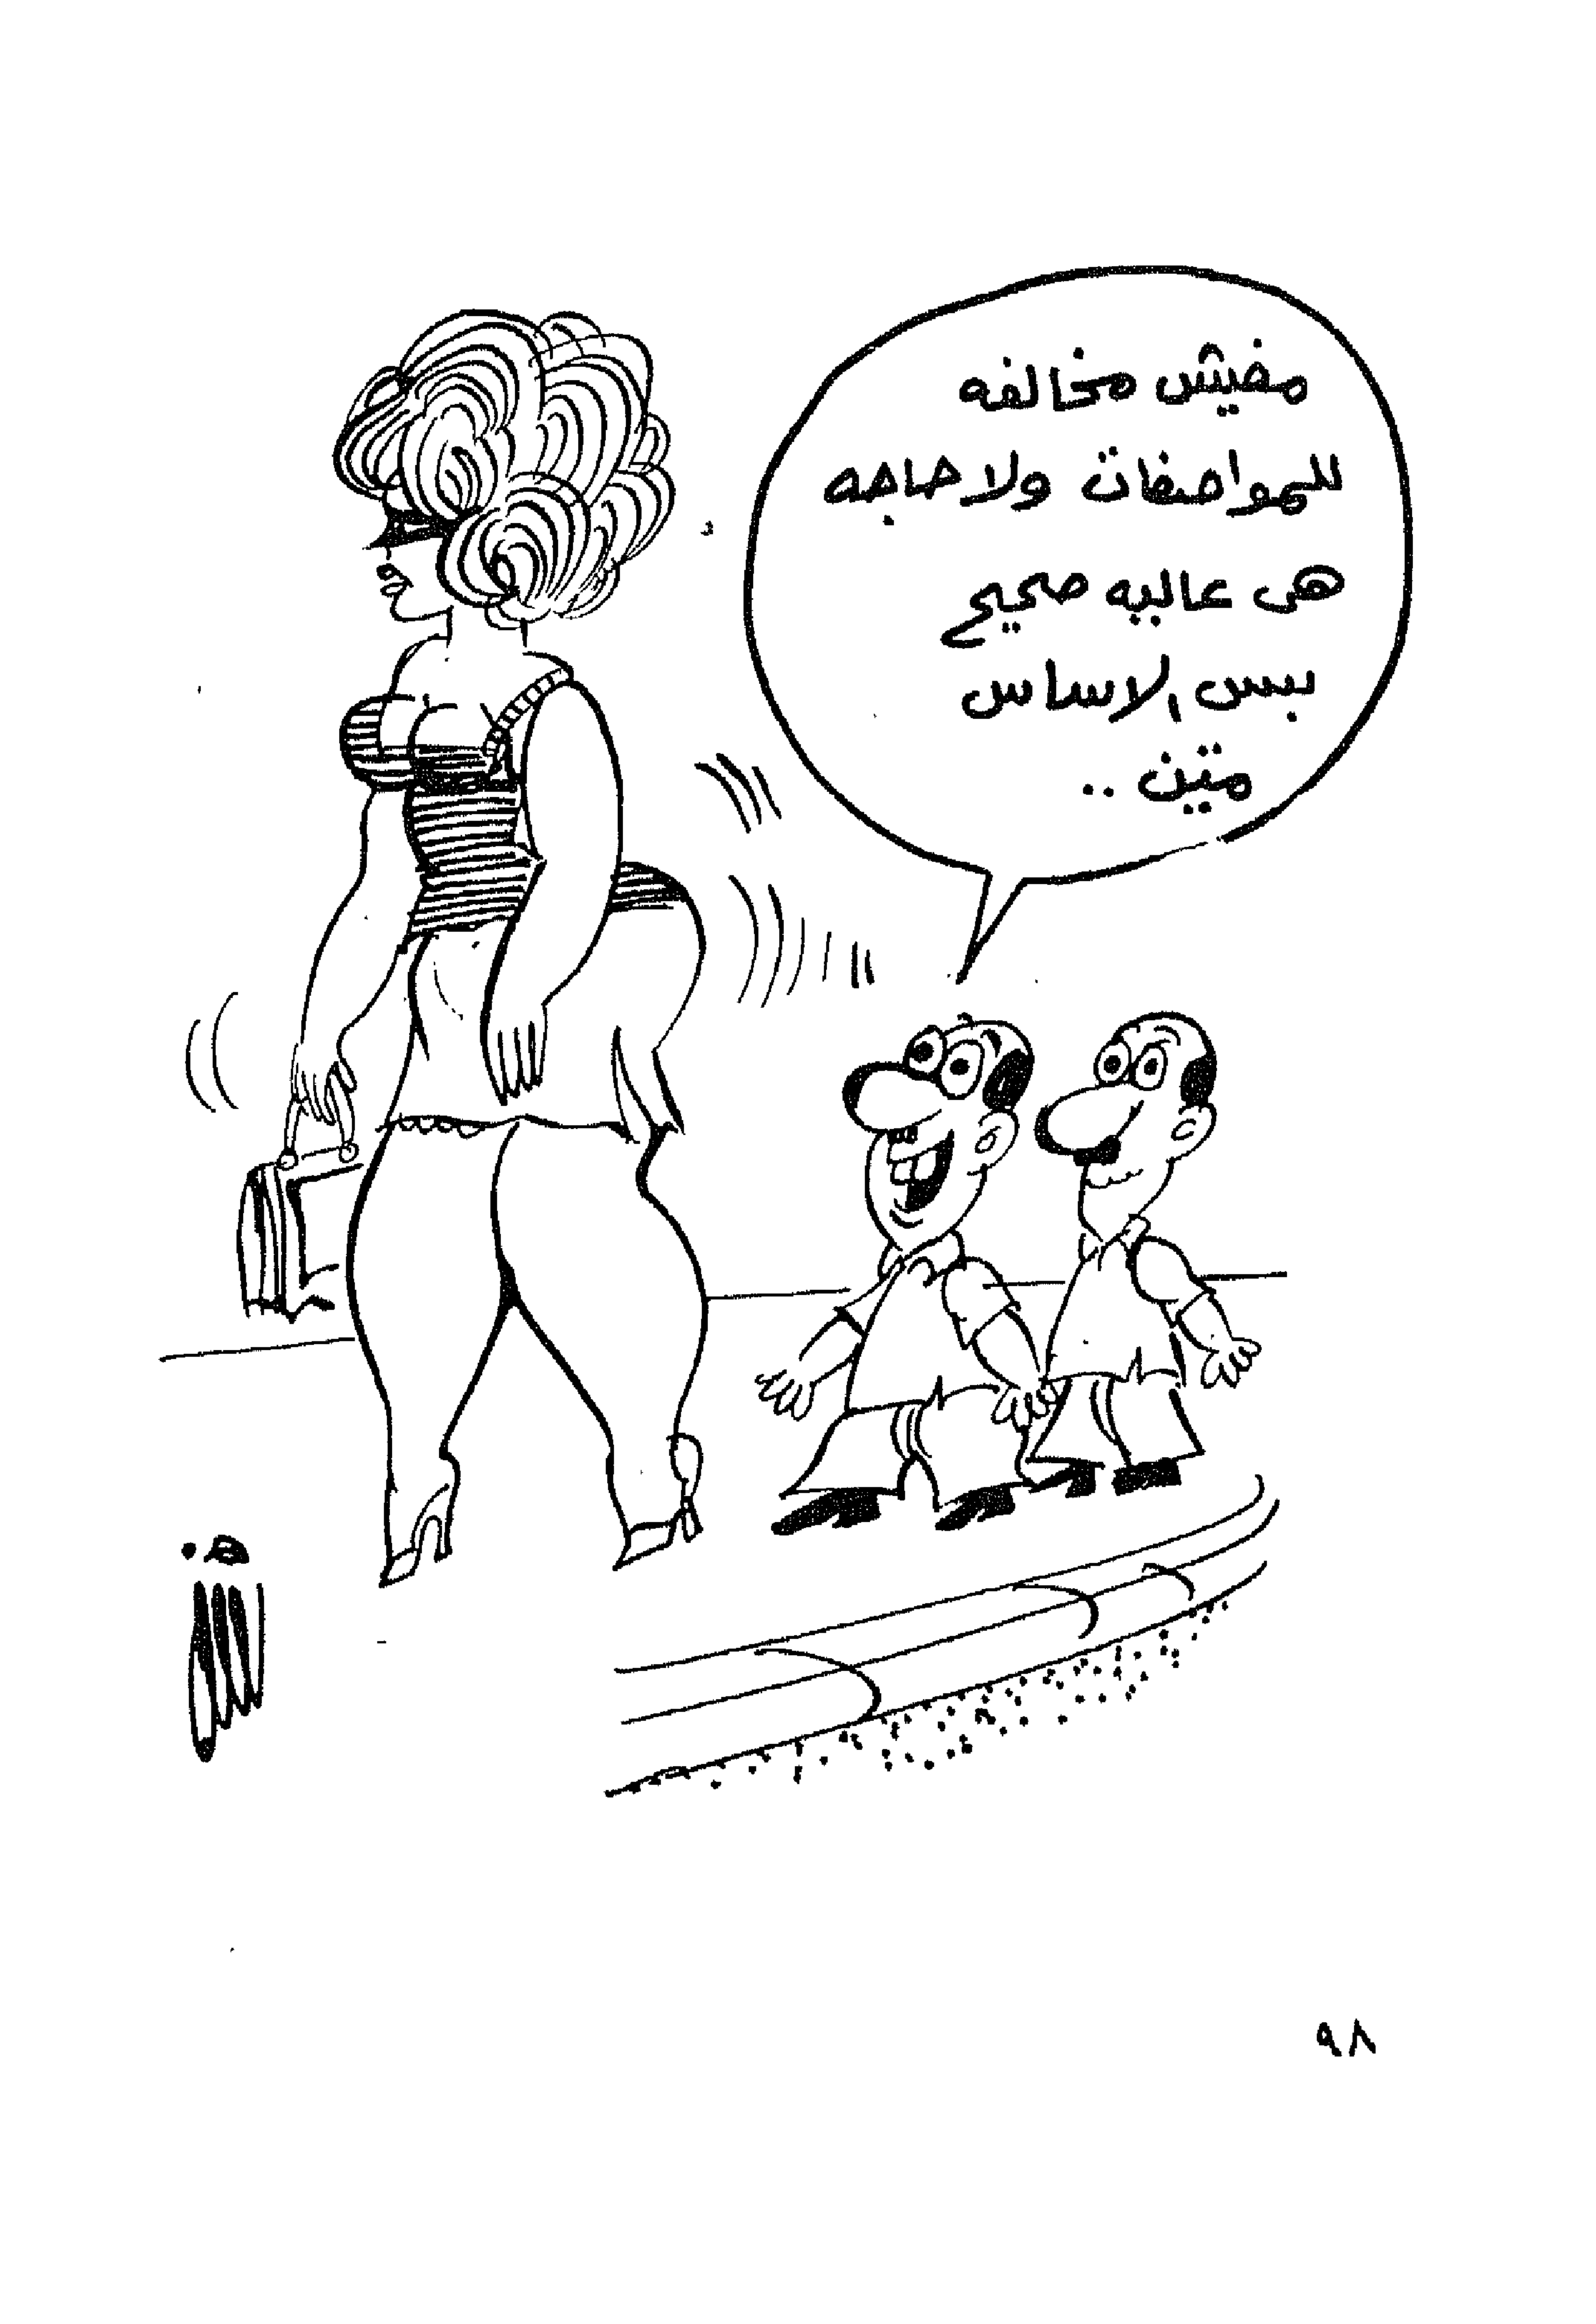 مفيش مخالفه
للمواصفات ولا حاجه
هى عاليه صحيح
بس الاساس
متين ..
٩٨